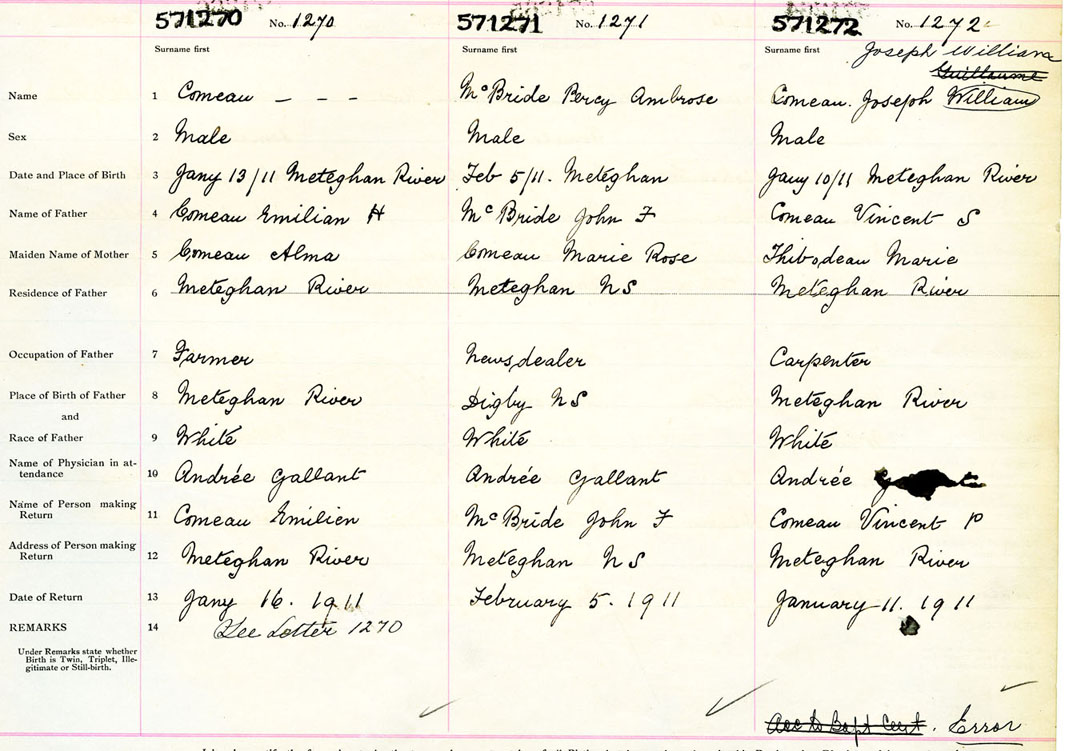 571270 No. 1270 571271 No. 1271 571272 No. 1272
Surname first Surname first Surname first Joseph William
Guillaume
Name 1 Comeau - - - McBride Percy Ambrose Comeau. Joseph William
Sex 2 Male Male Male
Date and Place of Birth 3 Jany 13/11 Meteghan River Feb 5/11. Meteghan Jany 10/11 Meteghan River
Name of Father 4 Comeau Emilian H McBride John F Comeau Vincent S
Maiden Name of Mother 5 Comeau Alma Comeau Marie Rose Thibodeau Marie
Residence of Father 6 Meteghan River Meteghan NS Meteghan River
Occupation of Father 7 Farmer Newsdealer Carpenter
Place of Birth of Father 8 Meteghan River Digby NS Meteghan River
and
Race of Father 9 White White White
Name of Physician in at-
tendance 10 Andrée Gallant Andrée Gallant Andrée
Name of Person making
Return 11 Comeau Emilien McBride John F Comeau Vincent P
Address of Person making
Return 12 Meteghan River Meteghan NS Meteghan River
Date of Return 13 Jany 16. 1911 February 5. 1911 January 11. 1911
REMARKS 14 See Letter 1270
Under Remarks state whether
Birth is Twin, Triplet, Ille-
gitimate or Still-birth.
Acc to Bapt Cert. Error